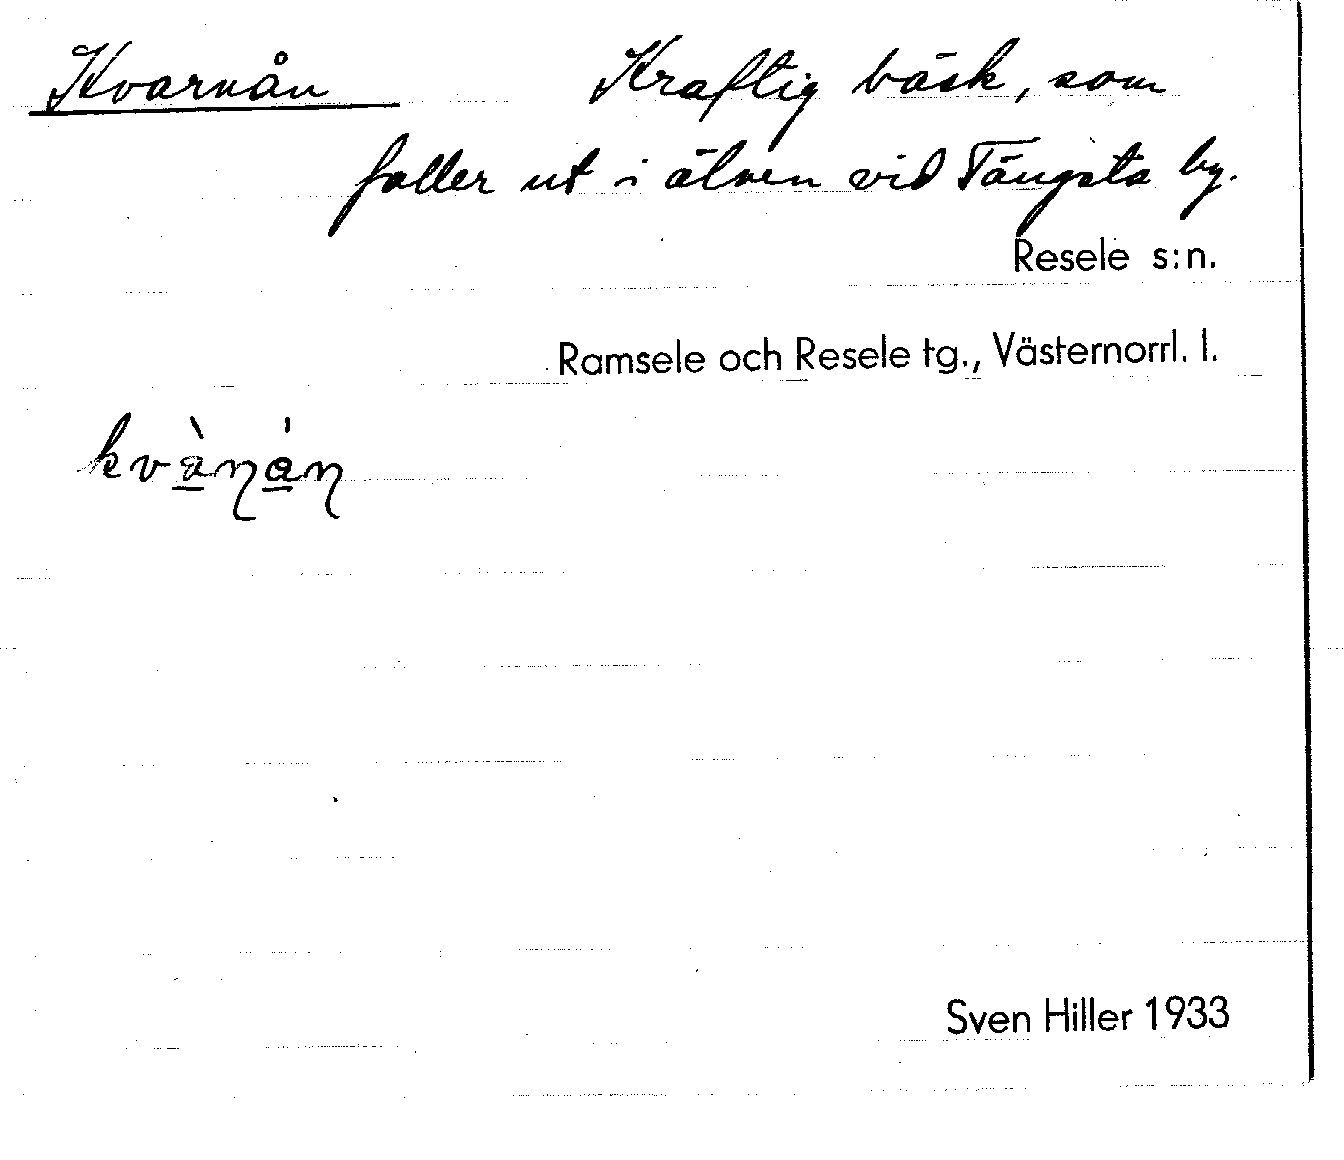 Kvarnån Kraftig bäck, som
faller ut i älven vid Tängsta by.
Resele s:n.
Ramsele och Resele tg., Västernorrl. l.
kvànán
Sven Hiller 1933